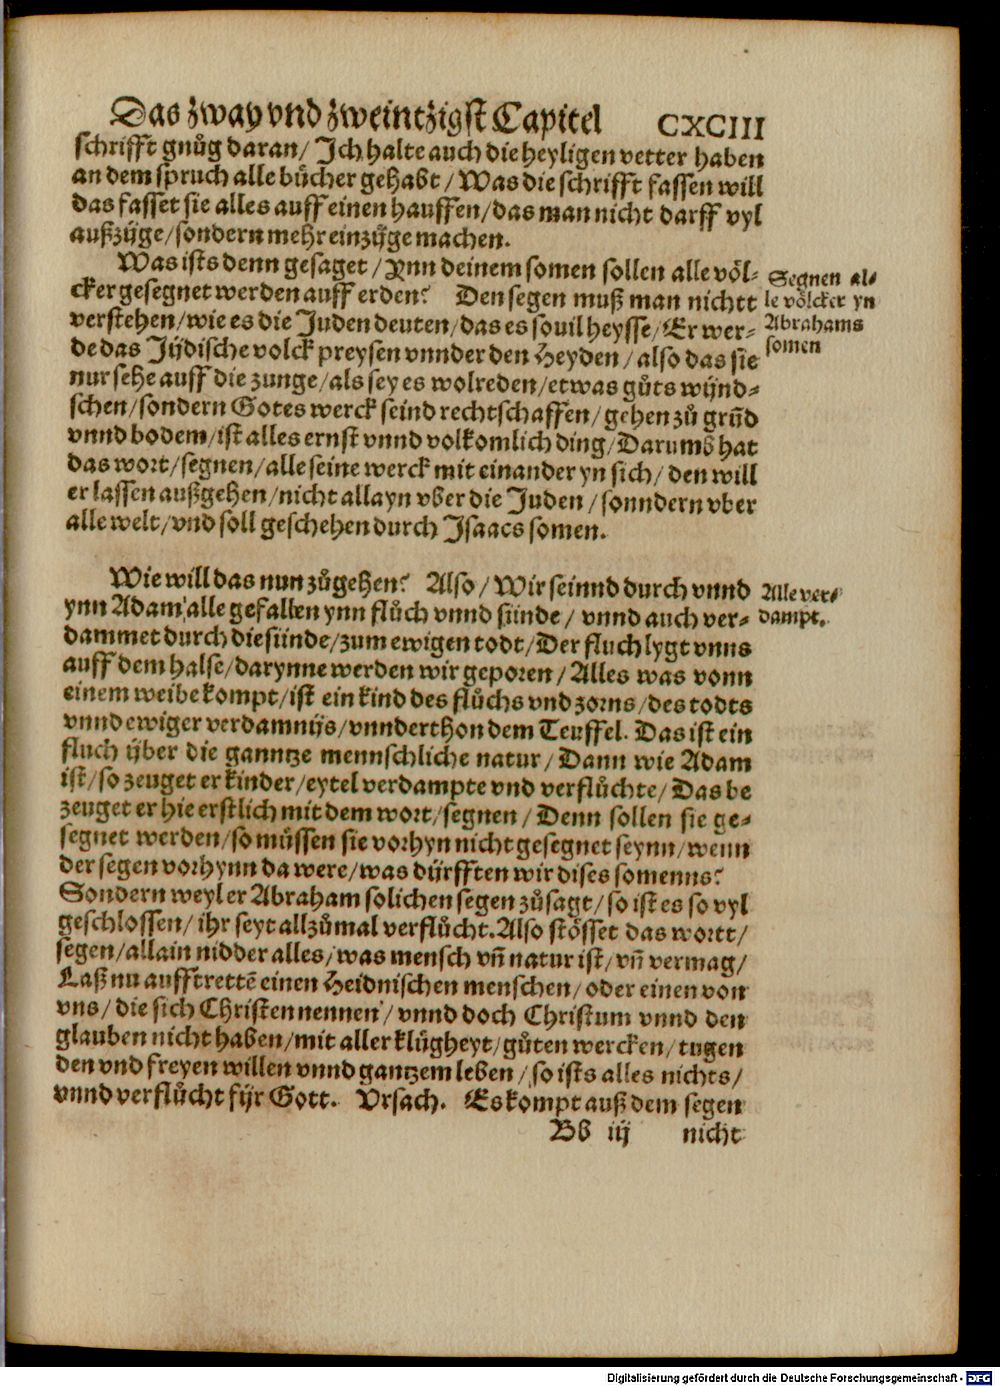 Das zway vnd zweintzigst Capitel CXCIII
schrifft gnůg daran/ Ich halte auch die heyligen vetter haben
an dem spruch alle bůcher gehabt/ Was die schrifft fassen will
das fasset sie alles auff einen hauffen/ das man nicht darff vyl
außzÿge/ sondern mehr einzÿge machen.
Was ists denn gesaget/ Ynn deinem somen sollen alle völ-
cker gesegnet werden auff erden? Den segen muß man nichtt
verstehen/ wie es die Juden deuten/ das es souil heysse/ Er wer-
de das Jÿdische volck preysen vnnder den Heyden/ also das sie
nur sehe auff die zunge/ als sey es wolreden/ etwas gůts wÿnd-
schen/ sondern Gotes werck seind rechtschaffen/ gehen zů grūd
vnnd bodem/ ist alles ernst vnnd volkomlich ding/ Darumb hat
das wort/ segnen/ alle seine werck mit einander yn sich/ den will
er lassen außgehen/ nicht allayn vber die Juden/ sonndern vber
alle welt/ vnd soll geschehen durch Isaacs somen.
Segnen al-
le völcker yn
Abrahams
somen
Wie will das nun zůgehen? Also/ Wir seinnd durch vnnd
ynn Adam alle gefallen ynn flůch vnnd sünde/ vnnd auch ver-
dammet durch die sünde/ zum ewigen todt/ Der fluch lygt vnns
auff dem halse/ darynne werden wir geporen/ Alles was vonn
einem weibe kompt/ ist ein kind des flůchs vnd zorns/ des todts
vnnd ewiger verdamnÿs/ vnnderthon dem Teuffel. Das ist ein
fluch ÿber die ganntze mennschliche natur/ Dann wie Adam
ist/ so zeuget er kinder/ eytel verdampte vnd verflůchte/ Das be
zeuget er hie erstlich mit dem wort/ segnen/ Denn sollen sie ge-
segnet werden/ so můssen sie vorhyn nicht gesegnet seynn/ wenn
der segen vorhynn da were/ was dÿrfften wir dises somenns?
Sondern weyl er Abraham solichen segen zůsagt/ so ist es so vyl
geschlossen/ ihr seyt allzůmal verflůcht. Also stösset das wortt/
segen/ allain nidder alles/ was mensch vñ natur ist/ vñ vermag/
Laß nu aufftrettē einen Heidnischen menschen/ oder einen von
vns/ die sich Christen nennen/ vnnd doch Christum vnnd den
glauben nicht haben/ mit aller klůgheyt/ gůten wercken/ tugen
den vnd freyen willen vnnd gantzem leben/ so ists alles nichts/
vnnd verflůcht fÿr Gott. Vrsach. Es kompt auß dem segen
Alle ver-
dampt.
Bb iij nicht
Digitalisierung gefördert durch die Deutsche Forschungsgemeinschaft - DFG